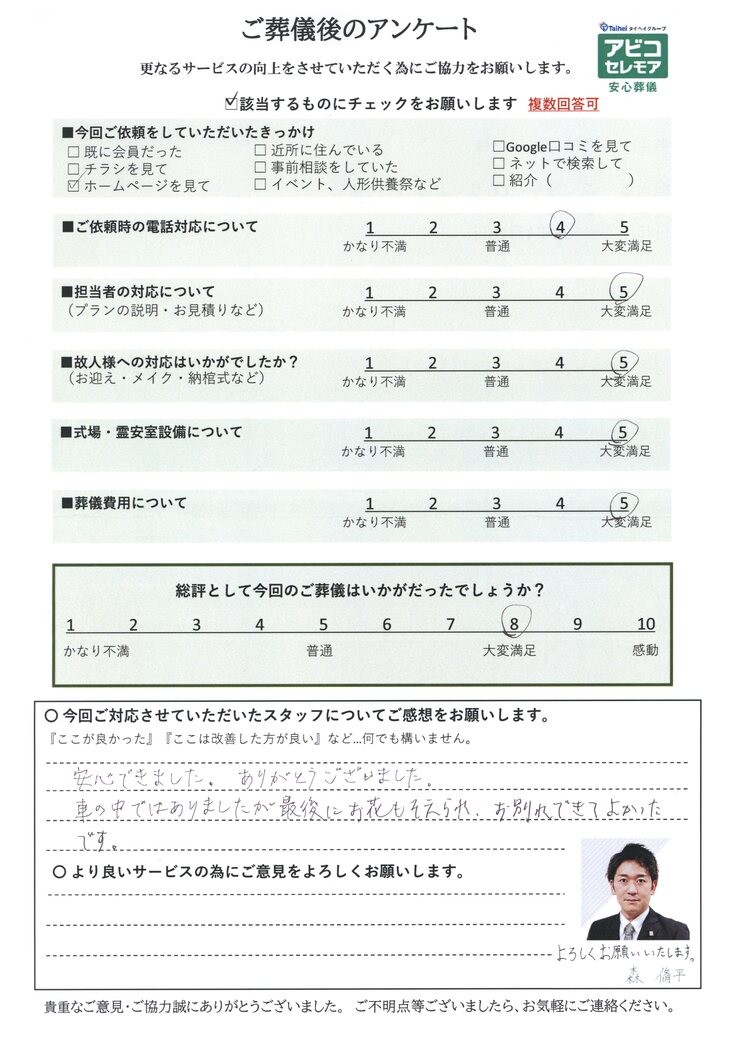 ご葬儀後のアンケート
Taihei タイヘイグループ
アビコ
セレモア
安心葬儀
更なるサービスの向上をさせていただく為にご協力をお願いします。
☑該当するものにチェックをお願いします 複数回答可
■今回ご依頼をしていただいたきっかけ
□ 既に会員だった □ 近所に住んでいる □Google口コミを見て
□ チラシを見て □ 事前相談をしていた □ ネットで検索して
☑ ホームページを見て □ イベント、人形供養祭など □ 紹介（ ）
■ご依頼時の電話対応について 1 2 3 4 5
かなり不満 普通 大変満足
■担当者の対応について 1 2 3 4 5
（プランの説明・お見積りなど） かなり不満 普通 大変満足
■故人様への対応はいかがでしたか？ 1 2 3 4 5
（お迎え・メイク・納棺式など） かなり不満 普通 大変満足
■式場・霊安室設備について 1 2 3 4 5
かなり不満 普通 大変満足
■葬儀費用について 1 2 3 4 5
かなり不満 普通 大変満足
総評として今回のご葬儀はいかがだったでしょうか？
1 2 3 4 5 6 7 8 9 10
かなり不満 普通 大変満足 感動
〇 今回ご対応させていただいたスタッフについてご感想をお願いします。
『ここが良かった』『ここは改善した方が良い』など…何でも構いません。
安心できました。 ありがとうございました。
車の中ではありましたが最後にお花もそえられ、お別れできてよかった
です。
〇 より良いサービスの為にご意見をよろしくお願いします。
よろしくお願いいたします。
森 脩平
貴重なご意見・ご協力誠にありがとうございました。 ご不明点等ございましたら、お気軽にご連絡ください。